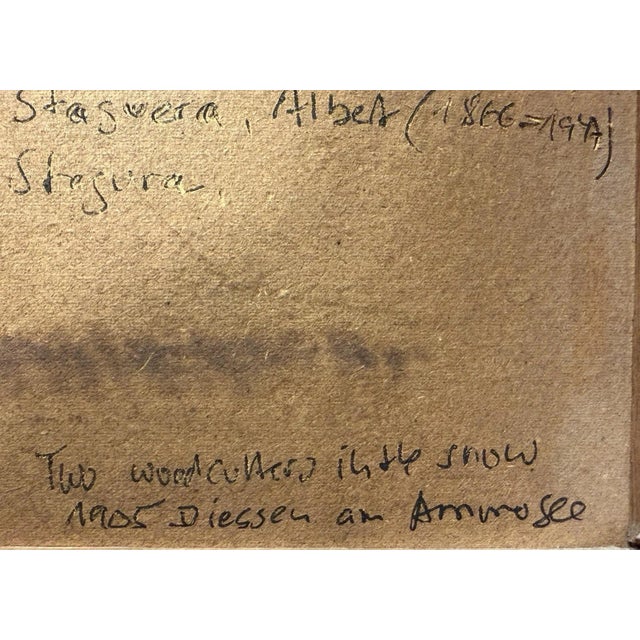 Staguera, Albert (1866=1947)
Stagura.
Two woodcutters in the snow
1905 Diessen am Ammosee